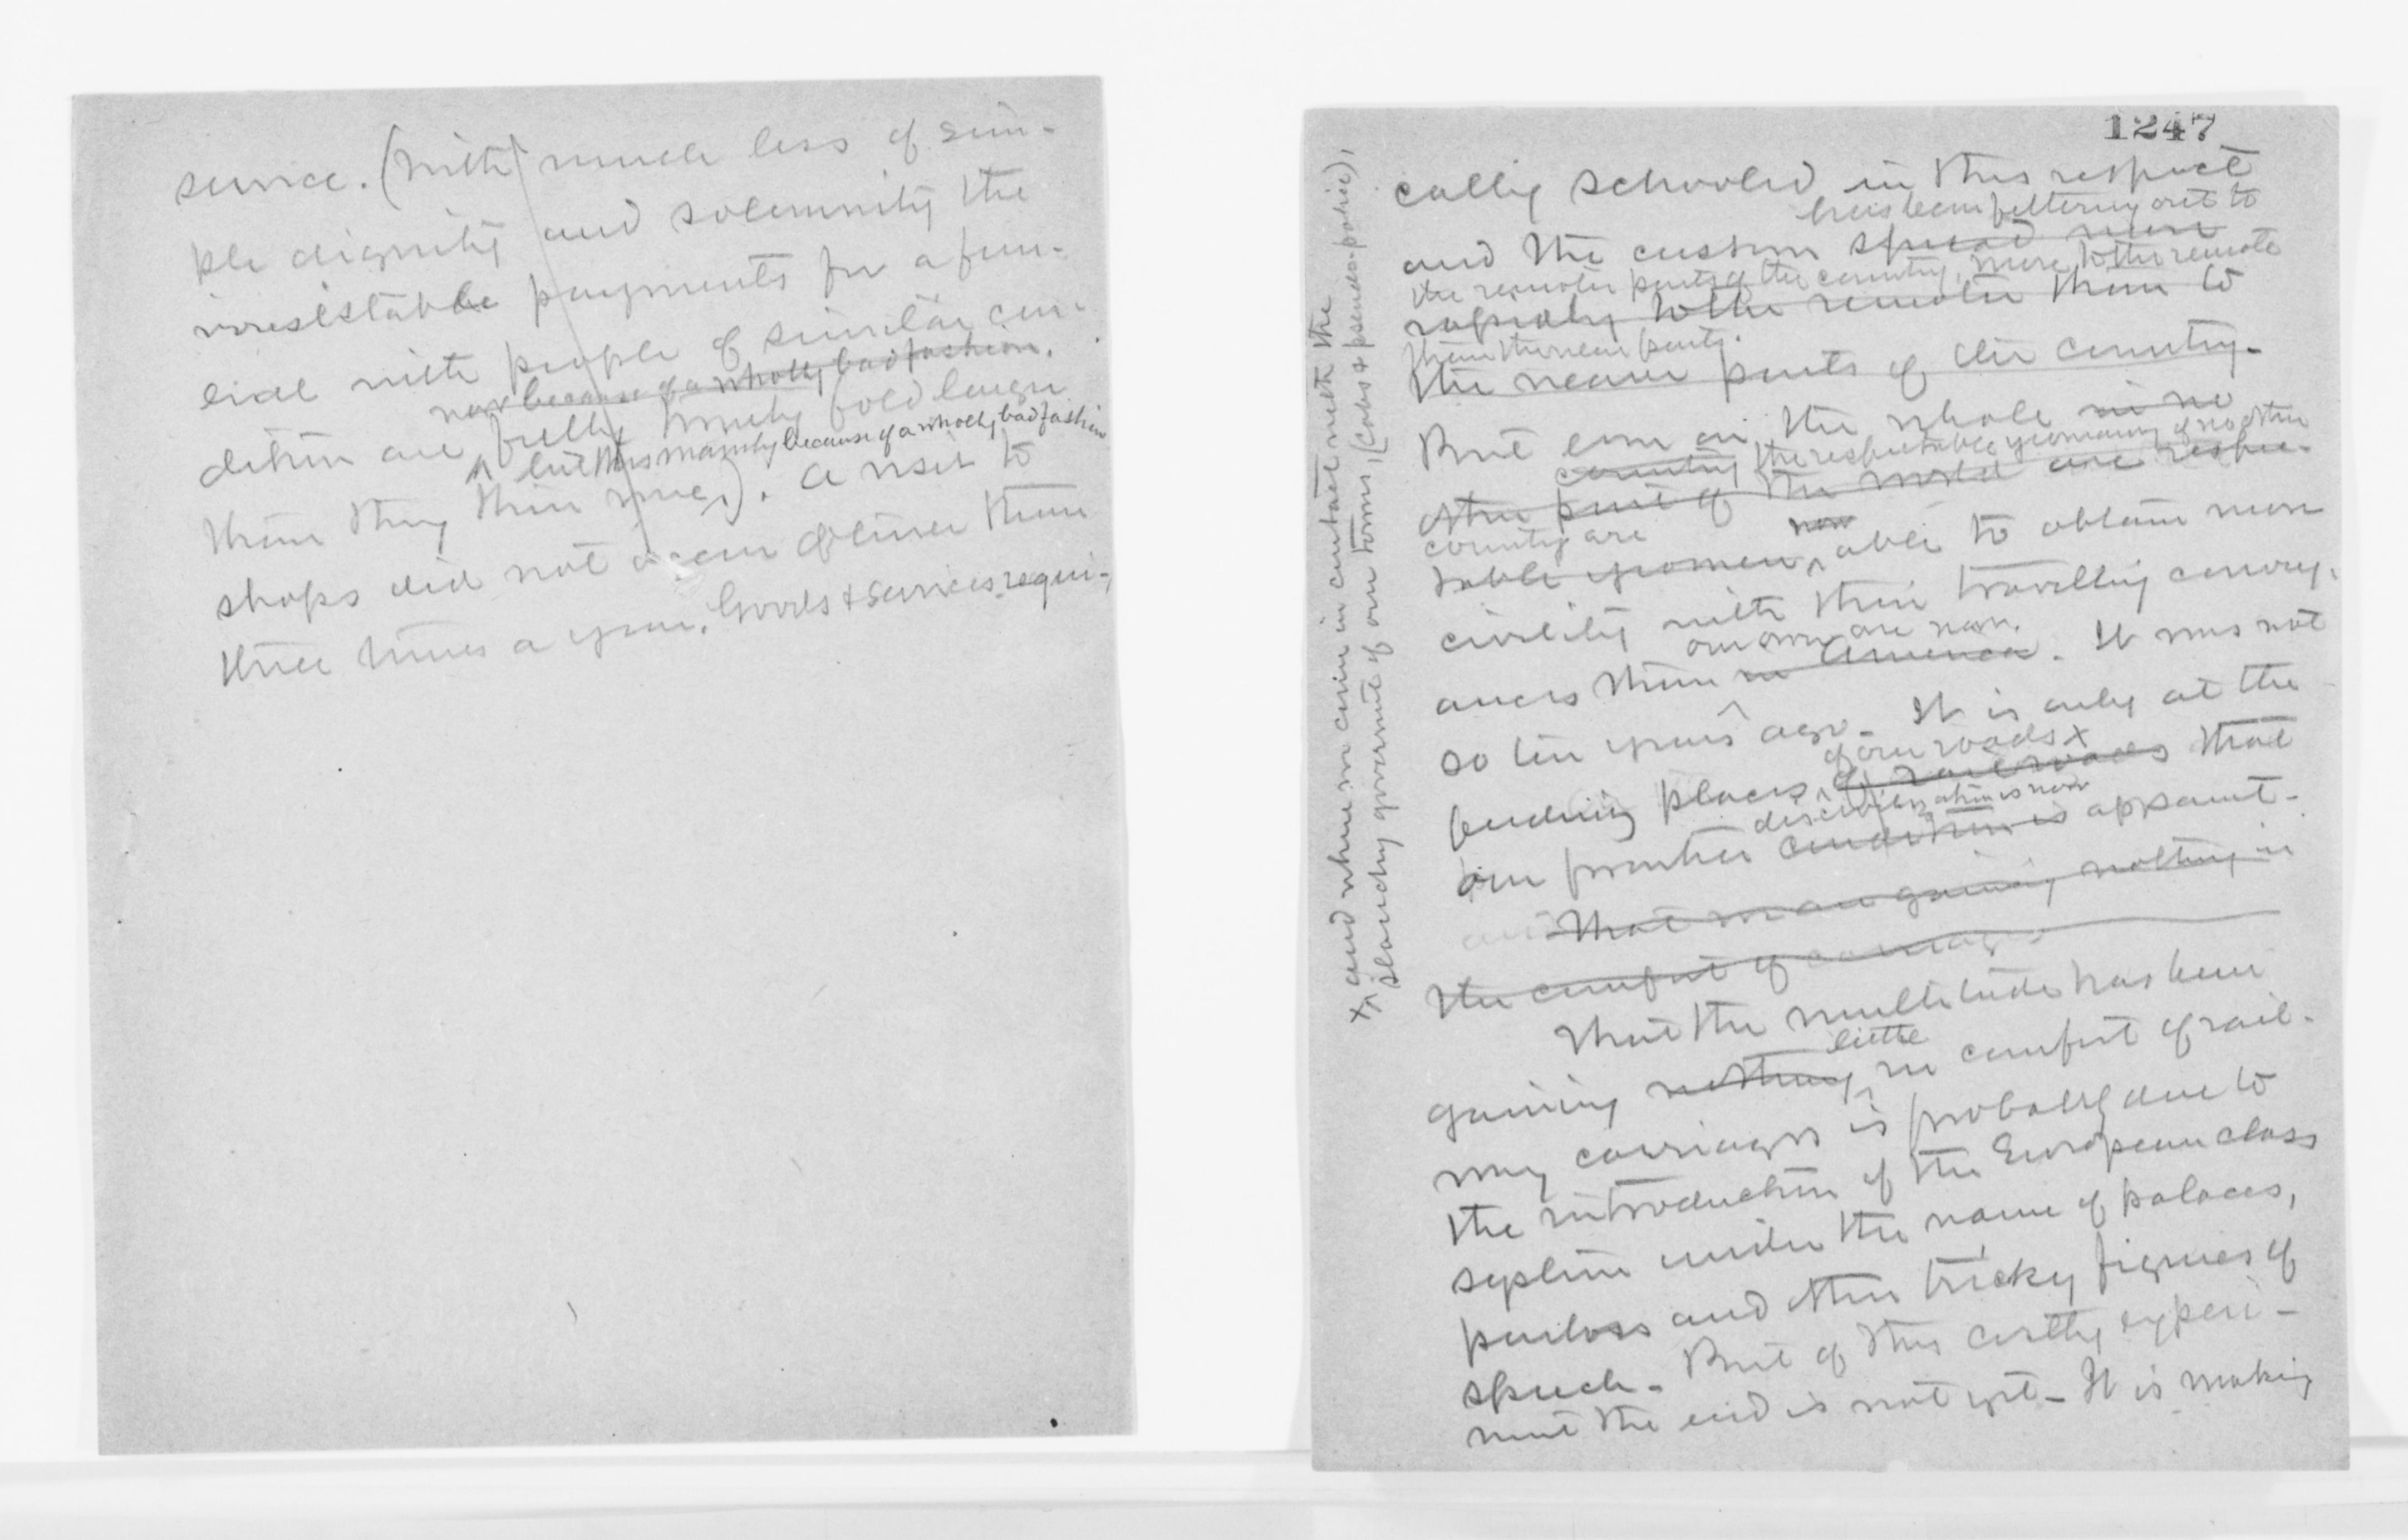 service. (With) much less of sim-
ple dignity and solemnity the
irresistable payments for a fun-
eral with people of similar con-
now because of a wholly bad fashion.
dition are fully twenty fold larger
but this mainly because of a wholly bad fashion
than they then were). A visit to
shops did not occur oftener than
three times a year. Goods & services requi-
1247
cally schooled in this respect
has been filtering out to
and the custom spread more
the remoter parts of the country, more to the remote
rapidly to the remoter than to
than the near parts.
the nearer parts of the country.
But even on the whole in no
country the respectable yeomanry of no other
other part of the world are respec-
country are now
table yeomen, able to obtain more
civility with their travelling convey-
our own are now.
ances than in America. It was not
so ten years ago. It is only at the
of our roads x
feeding places, of railroads that
discivilization is now
our frontier condition is apparent.
and That we are gaining nothing in
the comfort of carriages
That the multitude has been
little
gaining nothing in comfort of rail-
way carriages is probably due to
the introduction of the European class
system under the name of palaces,
parlors and other tricky figures of
speech. But of this costly experi-
ment the end is not yet. It is making
x and when we come in contact with the
slouchy government of our towns, (Cabs & pseudo-police),